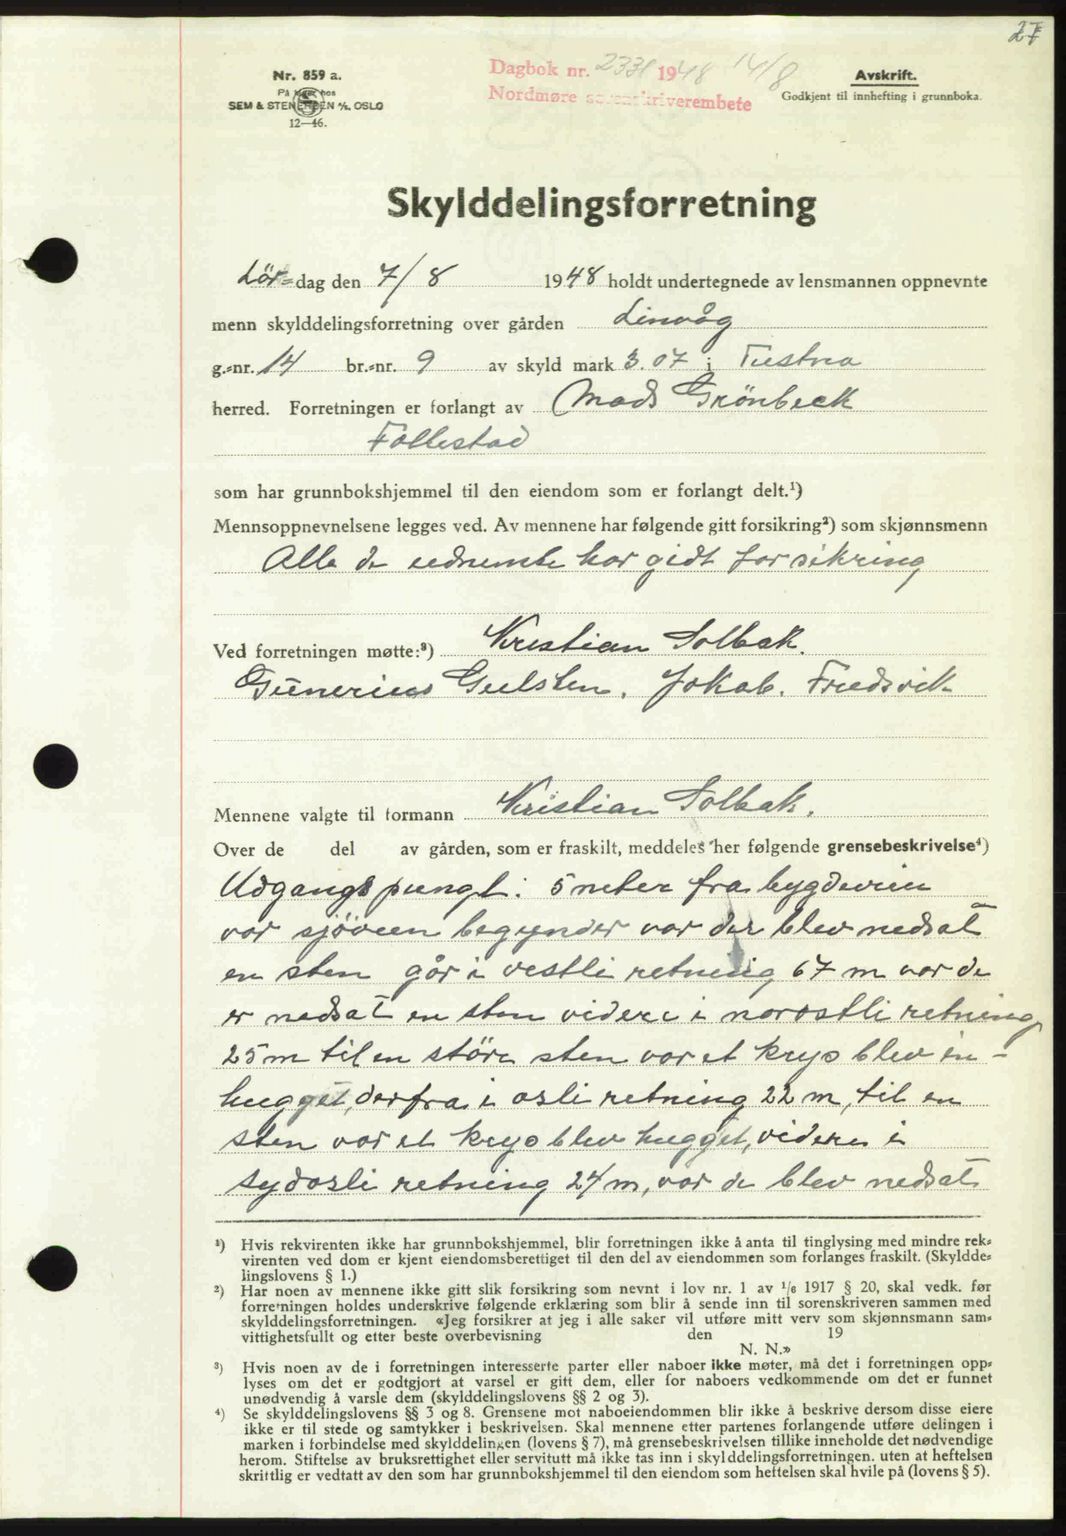 27
Nr. 859 a.
På lager hos
SEM & STENERSEN A/S, OSLO
12—46.
Dagbok nr. 2331 1948 14/8
Nordmøre sorenskriverembete
Avskrift.
Godkjent til innhefting i grunnboka.
Skylddelingsforretning
Lör-dag den 7/8 1948 holdt undertegnede av lensmannen oppnevnte
menn skylddelingsforretning over gården Linvåg
g.-nr. 14 br.-nr. 9 av skyld mark 3.07 i Tustna
herred. Forretningen er forlangt av Mads Grönbeck
Follestad
som har grunnbokshjemmel til den eiendom som er forlangt delt.¹)
Mennsoppnevnelsene legges ved. Av mennene har følgende gitt forsikring²) som skjønnsmenn
Alle de udnemte har gidt forsikring
Ved forretningen møtte:³) Kristian Solbak.
Gunerius Gulsten. Jokab. Fredsvik
Mennene valgte til formann Kristian Solbak.
Over de del av gården, som er fraskilt, meddeles her følgende grensebeskrivelse⁴)
Udgangspungt: 5 meter fra bygdeveien
vor sjöveen begynder vor der blev nedsat
en sten går i vestli retning 67 m vor de
er nedsat en sten videre i norostli retning
25 m til en störe sten vor et kryo blev in-
hugget, derfra i osli retning 22 m, til en
sten vor et kryo blev hugget, videre i
sydosli retning 24 m, vor de blev nedsat
¹) Hvis rekvirenten ikke har grunnbokshjemmel, blir forretningen ikke å anta til tinglysing med mindre rek-
virenten ved dom er kjent eiendomsberettiget til den del av eiendommen som forlanges fraskilt. (Skyldde-
lingslovens § 1.)
²) Har noen av mennene ikke gitt slik forsikring som nevnt i lov nr. 1 av 1/6 1917 § 20, skal vedk. før
forretningen holdes underskrive følgende erklæring som blir å sende inn til sorenskriveren sammen med
skylddelingsforretningen. «Jeg forsikrer at jeg i alle saker vil utføre mitt verv som skjønnsmann sam-
vittighetsfullt og etter beste overbevisning den 19
N. N.»
³) Hvis noen av de i forretningen interesserte parter eller naboer ikke møter, må det i forretningen opp-
lyses om det er godtgjort at varsel er gitt dem, eller for naboers vedkommende om det er funnet
unødvendig å varsle dem (skylddelingslovens §§ 2 og 3).
⁴) Se skylddelingslovens §§ 3 og 8. Grensene mot naboeiendommen blir ikke å beskrive dersom disse eiere
ikke er til stede og samtykker i beskrivelsen. Skal mennene etter partenes forlangende utføre delingen i
marken i forbindelse med skylddelingen (lovens § 7), må grensebeskrivelsen tillike inneholde det nødvendige
herom. Stiftelse av bruksrettighet eller servitutt må ikke tas inn i skylddelingsforretningen. uten at heftelsen
skriftlig er vedtatt av den som har grunnbokshjemmel til den eiendom som heftelsen skal hvile på (lovens § 5).